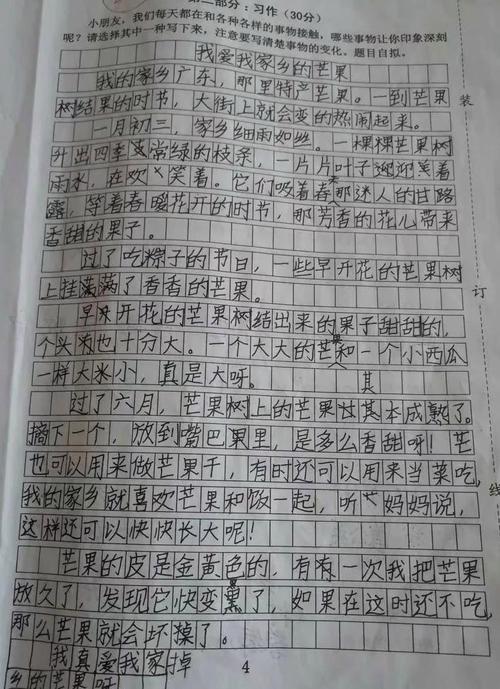 第二部分：习作（30分）
小朋友，我们每天都在和各种各样的事物接触，哪些事物让你印象深刻
呢？请选择其中一种写下来，注意要写清楚事物的变化。题目自拟。
我爱我家乡的芒果
我的家乡广东，那里特产芒果。一到芒果
树结果的时节，大街上就会变的热闹起来。
一月初三，家乡细雨如丝。一棵棵芒果树
升出四季常绿的枝条，一片片叶子迎迎着
雨水，在欢笑着。它们吸着春那迷人的甘露
露，等着春暖花开的时节，那芳香的花儿带来
香甜的果子。
过了吃粽子的节日，一些早开花的芒果树
上挂满满了香香的芒果。
早开花的芒果树结出来的果子甜甜的，
个头也十分大。一个大大的芒果和一个小西瓜
一样大小，真是大呀。
其
过了六月，芒果树上的芒果其本成熟了。
摘下一个，放到嘴巴果里，是多么香甜呀！芒
也可以用来做芒果干，有时还可以用来当菜吃，
我的家乡就喜欢芒果和饭一起，听妈妈说，
这样还可以快快长大呢！
芒果的皮是金黄色的，有有一次我把芒果
放久了，发现它快变黑了，如果在这时还不吃，
那么芒果就会坏掉了。
我真爱我家掉
乡的芒果呀
4
装
订
线